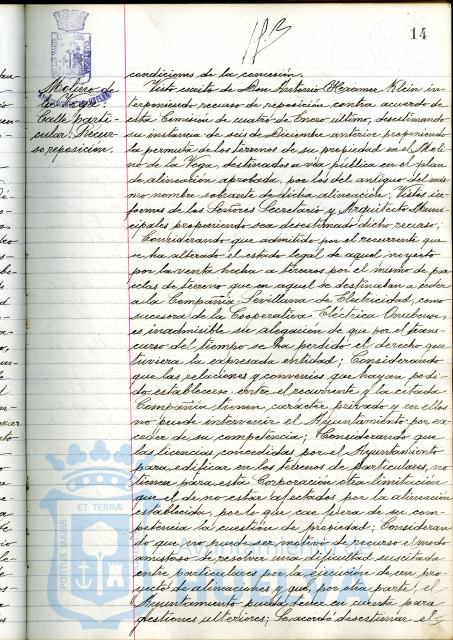 14
Molino de
la Vega:
Calle parti-
cular: Recur-
so reposición.
condiciones de la concesión.
Visto escrito de Don Antonio Oczamer Klein in-
terponiendo recurso de reposición contra acuerdo de
esta Comisión de cuatro de Enero último, desestimando
su instancia de seis de Diciembre anterior proponiendo
la permuta de los terrenos de su propiedad en el Moli-
no de la Vega, destinados a vía pública en el plan
de alineación aprobada, por los del antiguo del mis-
mo nombre sobrante de dicha alineación; Vistos in-
formes de los Señores Secretario y Arquitecto Muni-
cipales proponiendo sea desestimado dicho recurso;
Considerando que admitido por el recurrente que
se ha alterado el estado legal de aquel proyecto
por la venta hecha a terceros por el mismo de par-
celas de terreno que en aquel se destinaban a ceder
a la Compañía Sevillana de Electricidad, como
sucesora de la Cooperativa Eléctrica Onubense,
es inadmisible su alegación de que por el trans-
curso del tiempo se ha perdido el derecho que
tuviera la expresada entidad; Considerando
que las relaciones y convenios que hayan podi-
do establecerse entre el recurrente y la citada
Compañía tienen carácter privado y en ellos
no puede intervenir el Ayuntamiento por ex-
ceder de su competencia; Considerando que
las licencias concedidas por el Ayuntamiento
para edificar en los terrenos de particulares, no
tienen para esta Corporación otra limitación
que el de no estar afectados por la alineación
establecida, por lo que cae fuera de su com-
petencia la cuestión de propiedad; Consideran-
do que no puede ser motivo de recurso el modo
amistoso de resolver una dificultad suscitada
entre particulares por la ejecución de un pro-
yecto de alineaciones y que, por otra parte, el
Ayuntamiento pueda tener en cuenta para
gestiones ulteriores; Se acordó desestimar el
ET TERRÆ
PORTUS MARIS
Ayuntamiento